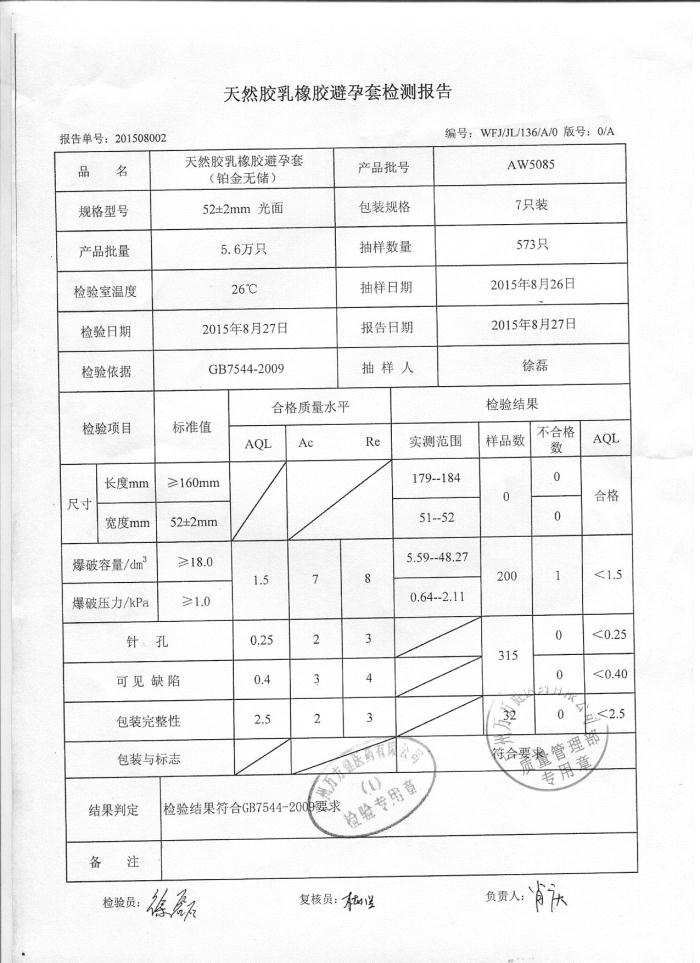 天然胶乳橡胶避孕套检测报告
报告单号：201508002 编号：WFJ/JL/136/A/0 版号：0/A
品 名 天然胶乳橡胶避孕套（铂金无储） 产品批号 AW5085
规格型号 52±2mm 光面 包装规格 7只装
产品批量 5.6万只 抽样数量 573只
检验室温度 26℃ 抽样日期 2015年8月26日
检验日期 2015年8月27日 报告日期 2015年8月27日
检验依据 GB7544-2009 抽 样 人 徐磊
检验项目 标准值 合格质量水平 检验结果
AQL Ac Re 实测范围 样品数 不合格数 AQL
尺寸 长度mm ≥160mm 179--184 0 0 合格
宽度mm 52±2mm 51--52 0
爆破容量/dm³ ≥18.0 1.5 7 8 5.59--48.27 200 1 <1.5
爆破压力/kPa ≥1.0 0.64--2.11
针 孔 0.25 2 3 315 0 <0.25
可见缺陷 0.4 3 4 0 <0.40
包装完整性 2.5 2 3 32 0 <2.5
包装与标志 符合要求
州万方健医药有限公司
(1)
检验专用章
质量管理部
专用章
结果判定 检验结果符合GB7544-2009要求
备 注
检验员：徐磊 复核员： 负责人：